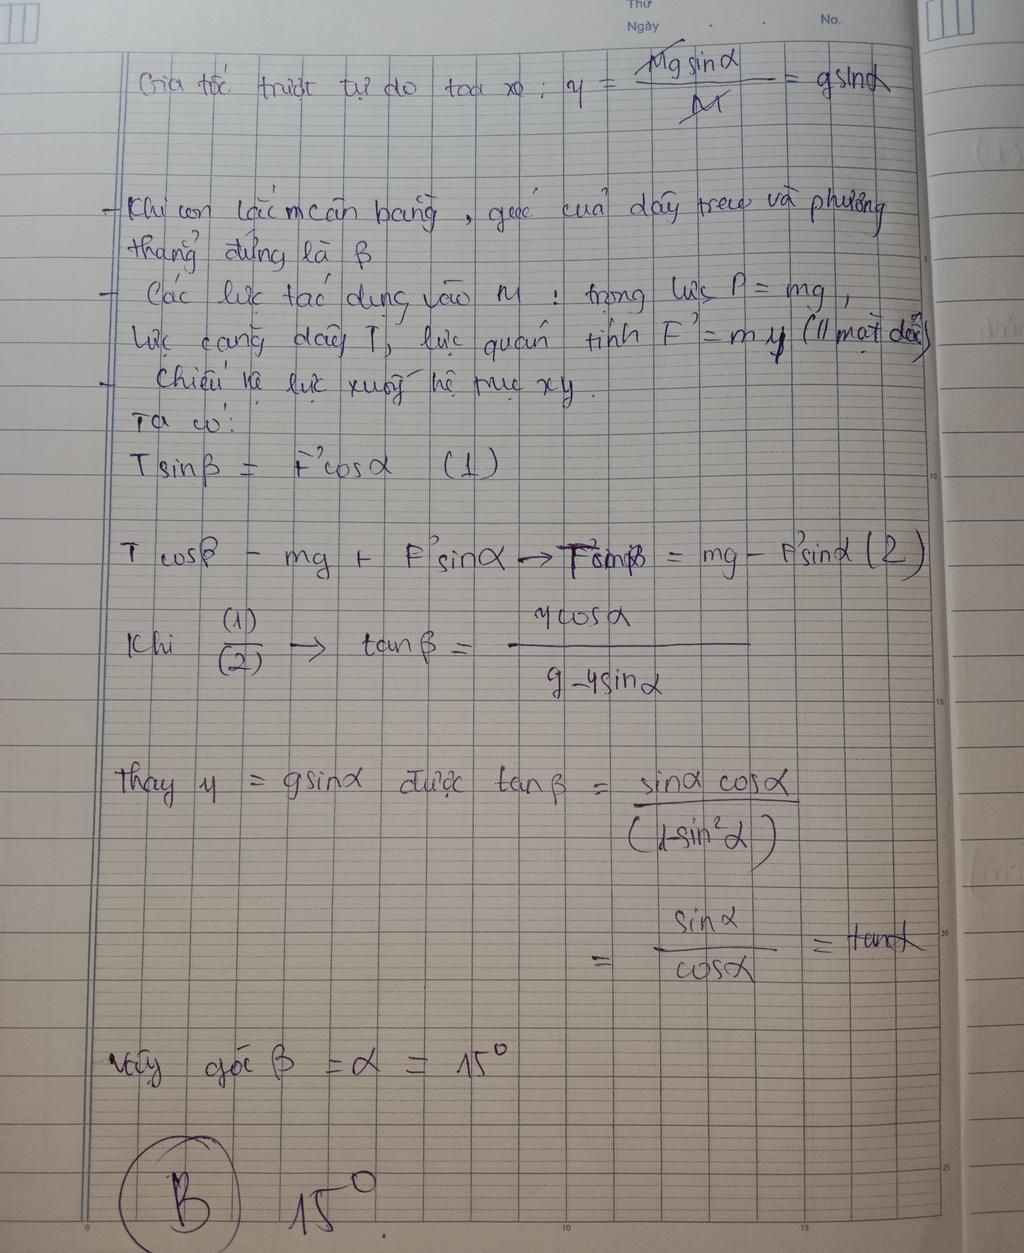 Thứ
Ngày . . No.
Gia tốc trượt tự do toa xe : y = Mg sinα / M = gsinα
- Khi con lắc m cân bằng, góc của dây treo và phương
thẳng đứng là β
- Các lực tác dụng vào M : trọng lực P = mg,
Lực căng dây T, lực quán tính F' = m y (// mặt dốc)
- Chiếu hệ lực xuống hệ trục xy.
Ta có:
T sinβ = F'cosα (1)
T cosβ - mg + F'sinα → = mg - F'sinα (2)
Khi (1)/(2) → tanβ = ycosα / g - ysinα
Thay y = gsinα được tanβ = sinα cosα / (1-sin²α)
= sinα / cosα = tanα
Vậy góc β = α = 15⁰
B 15⁰
5
10
15
20
25
0 10 15